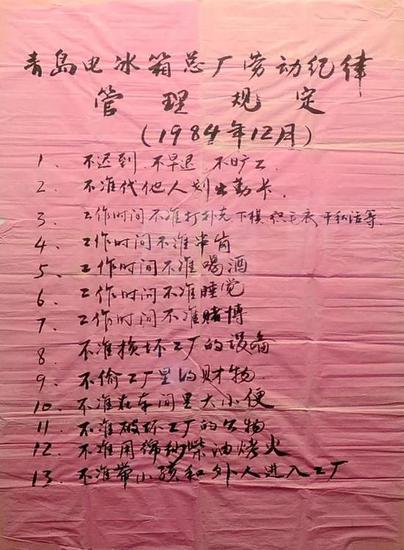 青岛电冰箱总厂劳动纪律
管理规定
(1984年12月)
1、不迟到 不早退 不旷工
2、不准代他人划出勤卡.
3、工作时间不准打扑克 下棋 织毛衣 干私活等.
4、工作时间不准串岗
5、工作时间不准喝酒
6、工作时间不准睡觉
7、工作时间不准赌博
8、不准损坏工厂的设备
9、不偷工厂里的财物
10、不准在车间里大小便
11、不准破坏工厂的公物
12、不准用棉纱柴油烤火
13、不准带小孩和外人进入工厂